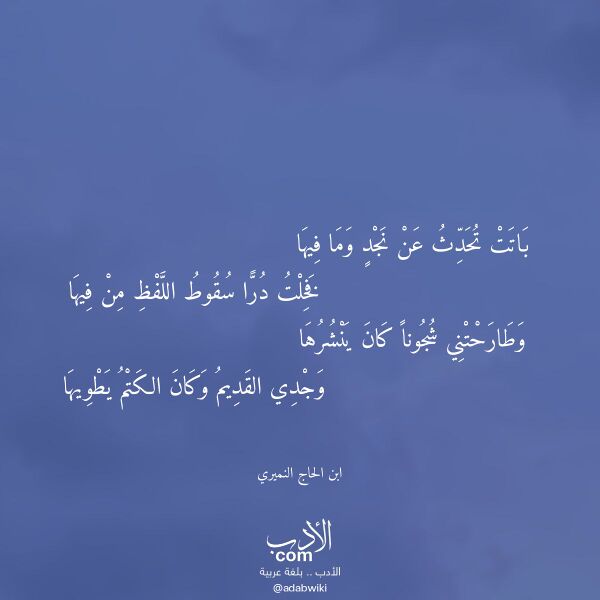 بَاتَتْ تُحَدِّثُ عَنْ نَجْدٍ وَمَا فِيهَا
فَخِلْتُ دُرًّا سُقُوطُ اللَّفْظِ مِنْ فِيهَا
وَطَارَحْتْنِي شُجُوناً كَانَ يَنْشُرُهَا
وَجْدِي القَدِيمُ وَكَانَ الكَتْمُ يَطْوِيهَا
ابن الحاج النميري
الأدب
com
الأدب .. بلغة عربية
@adabwiki